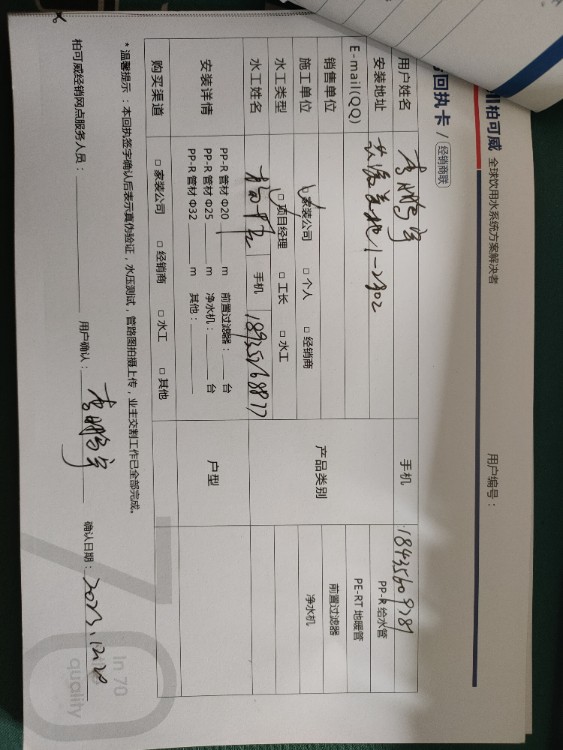 柏可威 全球饮用水系统方案解决者
用户编号：
回执卡 / 经销商联
用户姓名 手机
安装地址 1-2902 PP-R 给水管
E-mail(QQ) PE-RT 地暖管
销售单位 前置过滤器
施工单位 □ 家装公司 □ 个人 □ 经销商 产品类别 净水机
水工类型 □ 项目经理 □ 工长 □ 水工
水工姓名 手机
安装详情 PP-R 管材 Φ20 m 前置过滤器： 台 户型
PP-R 管材 Φ25 m 净水机： 台
PP-R 管材 Φ32 m 其他：
购买渠道 □ 家装公司 □ 经销商 □ 水工 □ 其他
* 温馨提示：本回执签字确认后表示真伪验证，水压测试，管路图拍摄上传，业主交割工作已全部完成。
柏可威经销网点服务人员： 用户确认： 确认日期：
In 70
quality